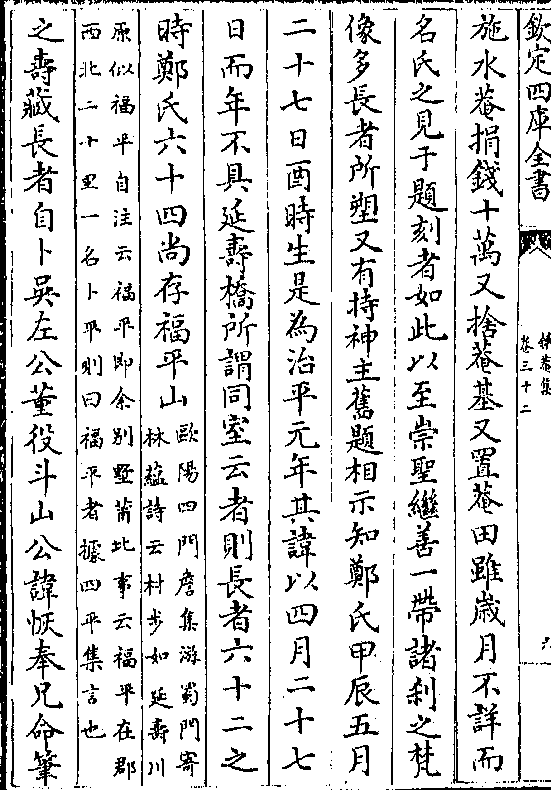 欽定四庫全書
卷三十二
施水菴捐錢十萬又捨菴基又置菴田雖歲月不詳而
名氏之見于題刻者如此以至崇聖繼善一帶諸刹之梵
像多長者所塑又有持神主舊題相示知鄭氏甲辰五月
二十七日酉時生是為治平元年其諱以四月二十七
日而年不具延壽橋所謂同室云者則長者六十二之
時鄭氏六十四尚存福平山
歐陽四門詹集游蜀門寄
林蘊詩云村步如延壽川
原似福平自注云福平即余別墅莆北事云福平在郡
西北二十里一名卜平則曰福平者據四平集言也
之壽藏長者自卜吳左公董役斗山公諱恢奉兄命筆